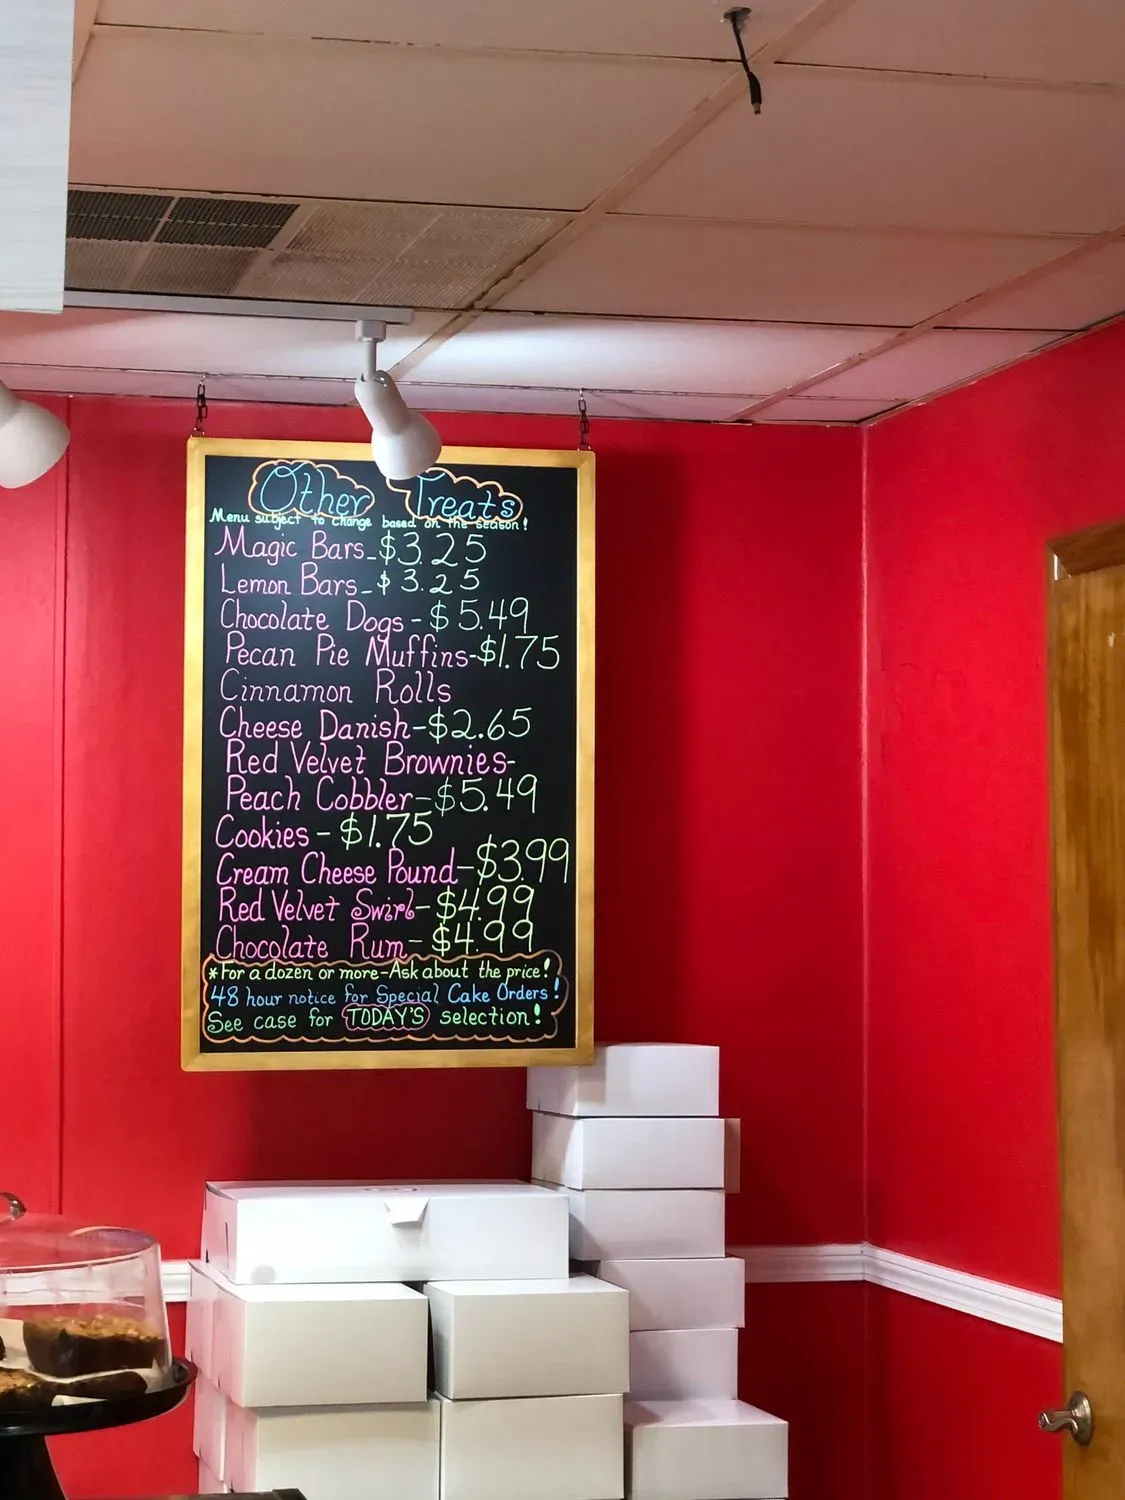 Other Treats
Menu subject to change based on the season!
Magic Bars-$3.25
Lemon Bars-$3.25
Chocolate Dogs-$5.49
Pecan Pie Muffins-$1.75
Cinnamon Rolls
Cheese Danish-$2.65
Red Velvet Brownies-
Peach Cobbler-$5.49
Cookies-$1.75
Cream Cheese Pound-$3.99
Red Velvet Swirl-$4.99
Chocolate Rum-$4.99
*For a dozen or more-Ask about the price!
48 hour notice for Special Cake Orders!
See case for TODAY'S selection!